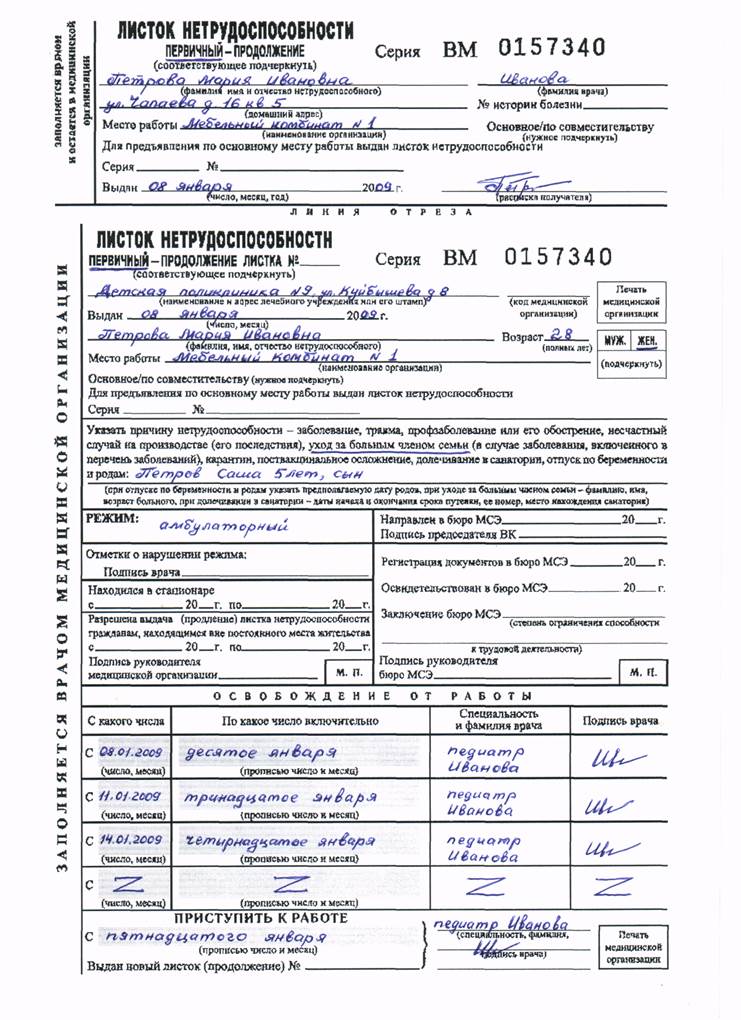 ЛИСТОК НЕТРУДОСПОСОБНОСТИ
ПЕРВИЧНЫЙ – ПРОДОЛЖЕНИЕ Серия ВМ 0157340
(соответствующее подчеркнуть)
Петрова Мария Ивановна Иванова
(фамилия имя и отчество нетрудоспособного) (фамилия врача)
ул. Чапаева д 16 кв 5 № истории болезни
(домашний адрес)
Место работы Мебельный комбинат N 1 Основное/по совместительству
(наименование организации) (нужное подчеркнуть)
Для предъявления по основному месту работы выдан листок нетрудоспособности
Серия № 
Выдан 08 января 2009 г.
(число, месяц, год) (расписка получателя)
заполняется врачом
и остается в медицинской
организации
ЛИНИЯ ОТРЕЗА
ЛИСТОК НЕТРУДОСПОСОБНОСТИ
ПЕРВИЧНЫЙ – ПРОДОЛЖЕНИЕ ЛИСТКА № Серия ВМ 0157340
(соответствующее подчеркнуть)
Детская поликлиника N9, ул. Куйбышева д 8
(наименование и адрес лечебного учреждения или его штамп) (код медицинской организации)
Печать медицинской организации
Выдан 08 января 2009 г.
(число, месяц)
Петрова Мария Ивановна Возраст 28 МУЖ. ЖЕН.
(фамилия, имя, отчество нетрудоспособного) (полных лет)
Место работы Мебельный комбинат N 1 (подчеркнуть)
(наименование организации)
Основное/по совместительству (нужное подчеркнуть)
Для предъявления по основному месту работы выдан листок нетрудоспособности
Серия №
Указать причину нетрудоспособности – заболевание, травма, профзаболевание или его обострение, несчастный
случай на производстве (его последствия), уход за больным членом семьи (в случае заболевания, включенного в
перечень заболеваний), карантин, поствакцинальное осложнение, долечивание в санатории, отпуск по беременности
и родам: Петров Саша 5 лет, сын
(при отпуске по беременности и родам указать предполагаемую дату родов, при уходе за больным членом семьи – фамилию, имя,
возраст больного, при долечивании в санатории – даты начала и окончания срока путевки, ее номер, место нахождения санатория)
РЕЖИМ: амбулаторный
Отметки о нарушении режима:
Подпись врача
Находился в стационаре
с 20 г. по 20 г.
Разрешена выдача (продление) листка нетрудоспособности
гражданам, находящимся вне постоянного места жительства
с 20 г. по 20 г.
Подпись руководителя
медицинской организации М. П.
Направлен в бюро МСЭ 20 г.
Подпись председателя ВК
Регистрация документов в бюро МСЭ 20 г.
Освидетельствован в бюро МСЭ 20 г.
Заключение бюро МСЭ
(степень ограничения способности
к трудовой деятельности)
Подпись руководителя
бюро МСЭ М. П.
ОСВОБОЖДЕНИЕ ОТ РАБОТЫ
С какого числа По какое число включительно Специальность и фамилия врача Подпись врача
С 08.01.2009 десятое января педиатр Иванова
(число, месяц) (прописью число и месяц)
С 11.01.2009 тринадцатое января педиатр Иванова
(число, месяц) (прописью число и месяц)
С 14.01.2009 четырнадцатое января педиатр Иванова
(число, месяц) (прописью число и месяц)
С Z Z Z Z
(число, месяц) (прописью число и месяц)
ПРИСТУПИТЬ К РАБОТЕ
С пятнадцатого января педиатр Иванова
(прописью число и месяц) (специальность, фамилия,
подпись врача)
Выдан новый листок (продолжение) №
Печать медицинской организации
ЗАПОЛНЯЕТСЯ ВРАЧОМ МЕДИЦИНСКОЙ ОРГАНИЗАЦИИ